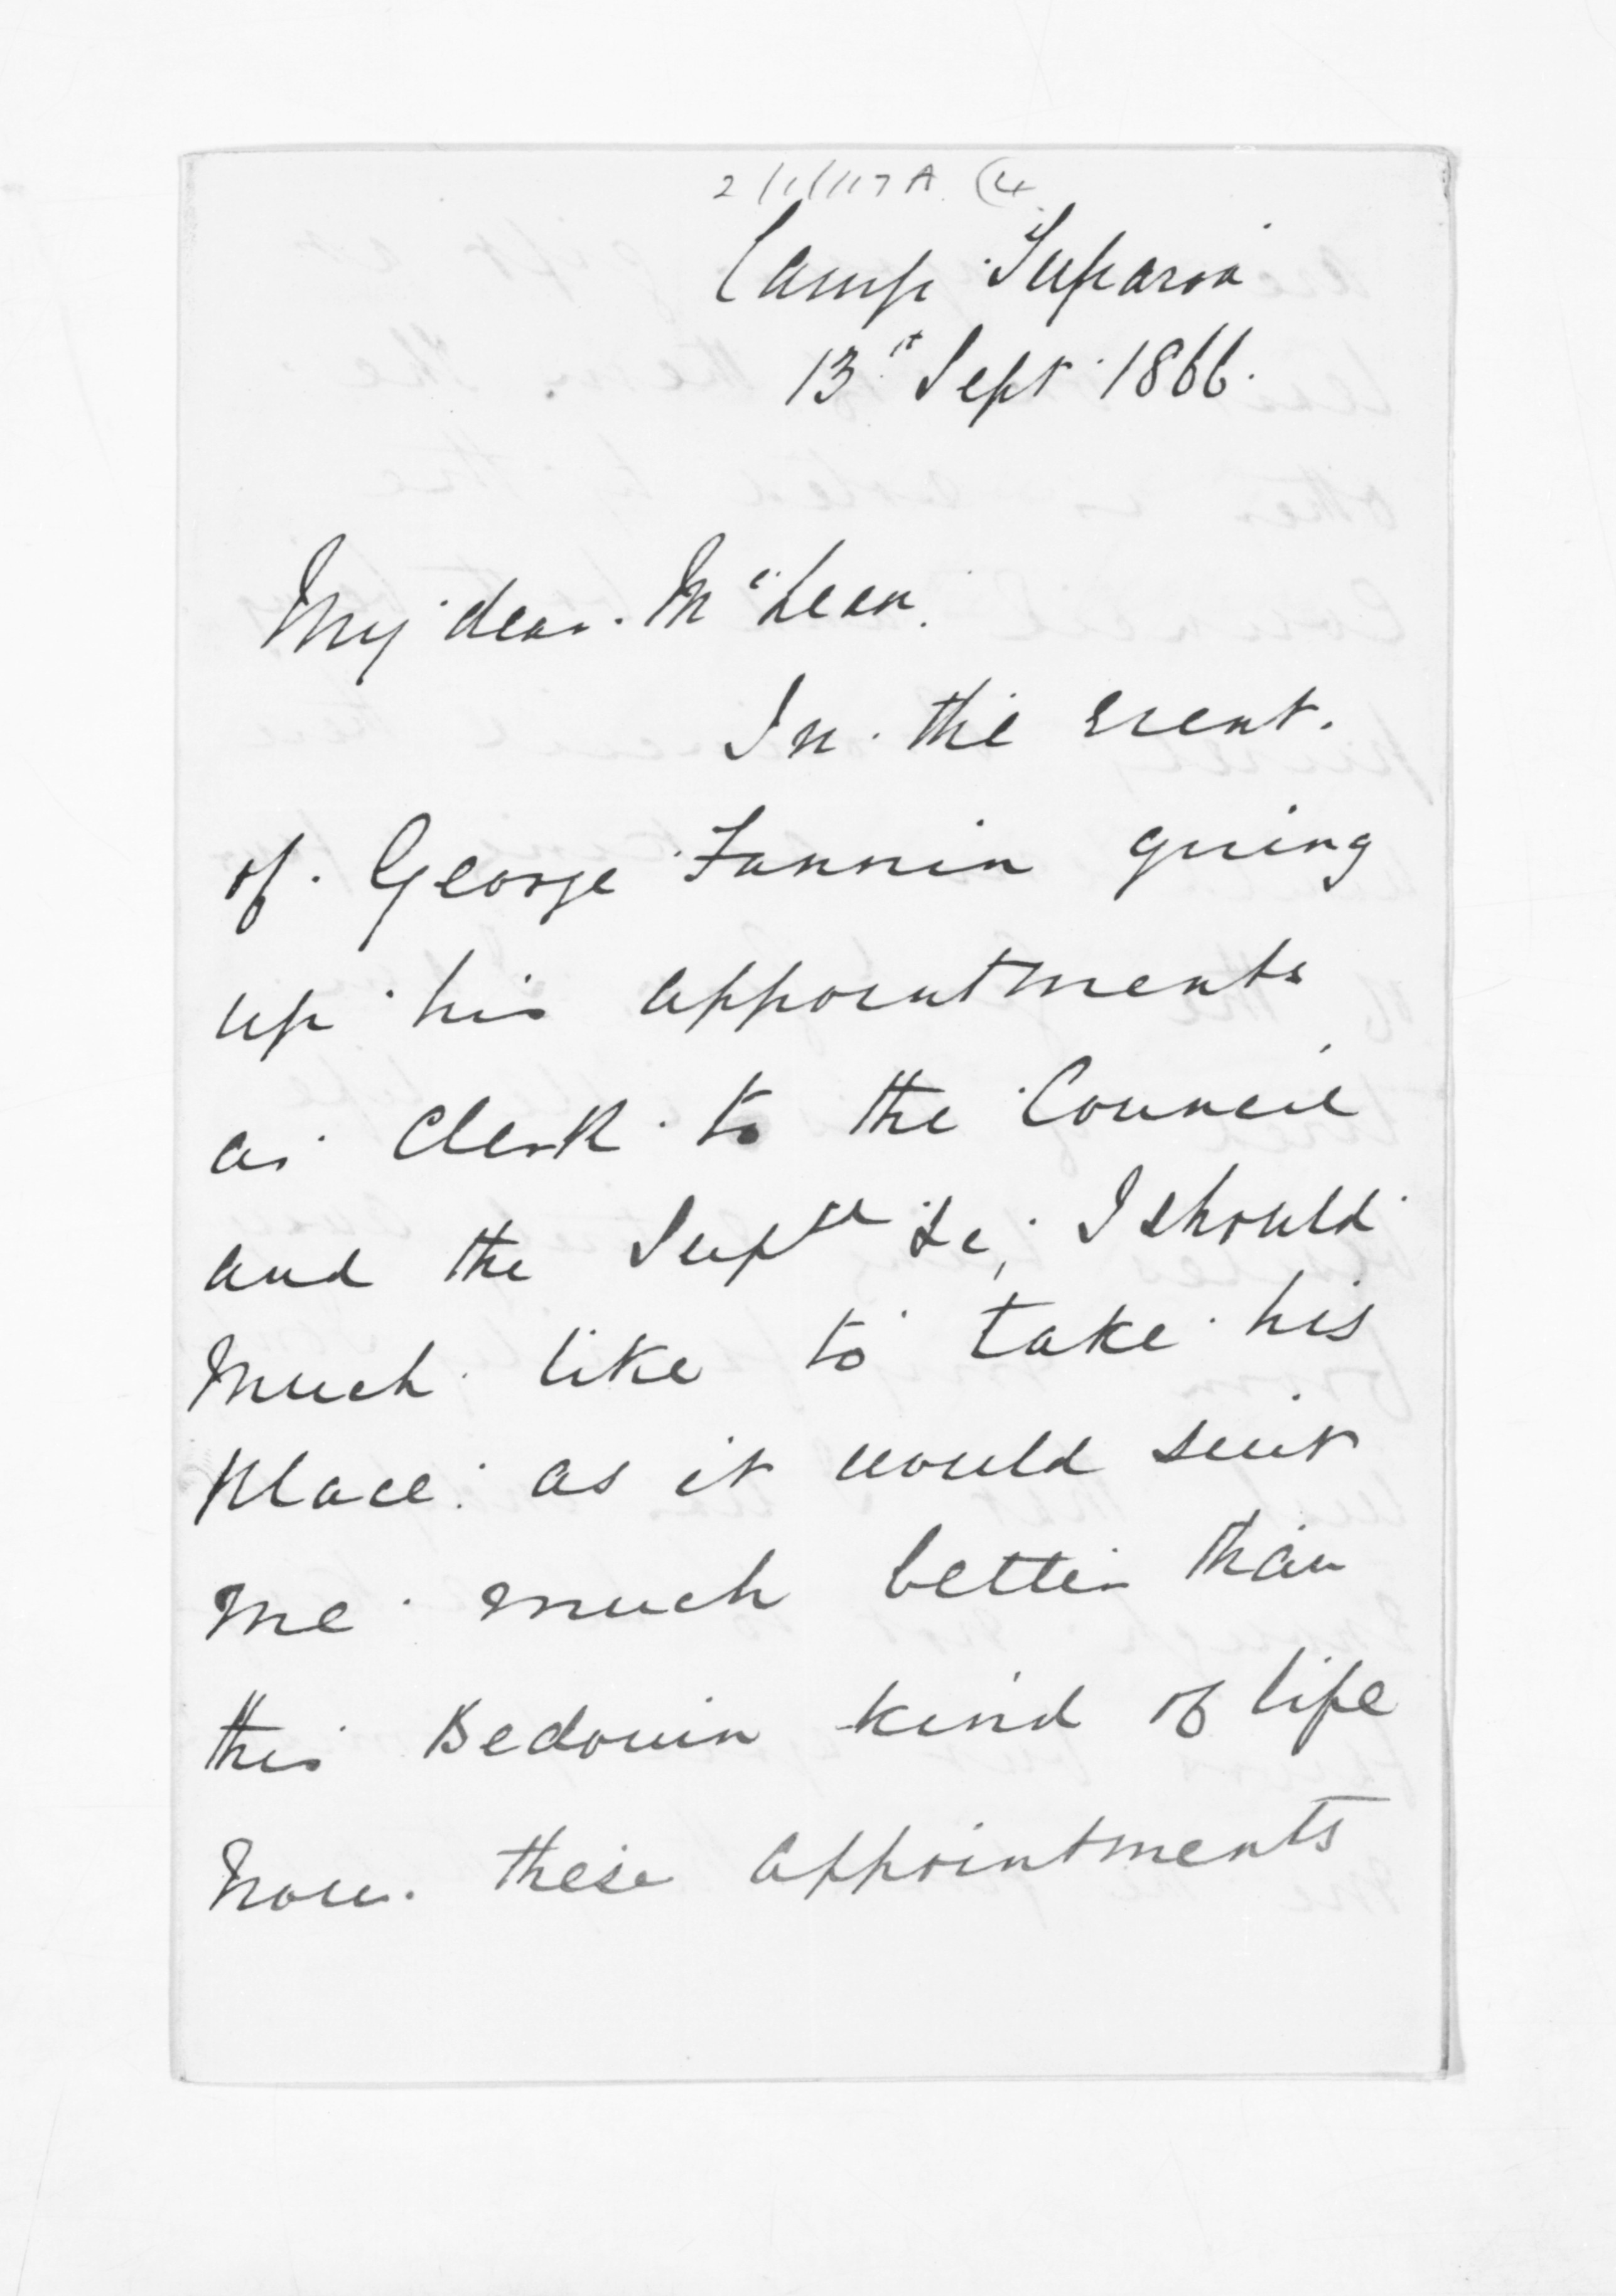 2/1/117A (4
Camp Tuparoa
13th Sept. 1866.
My dear McLean.
In the event.
of George Fannin giving
up his appointments
as Clerk to the Council
and the Supt &c, I should
much like to take his
place: as it would suit
me much better than
this Bedouin kind of life
Now. these appointments